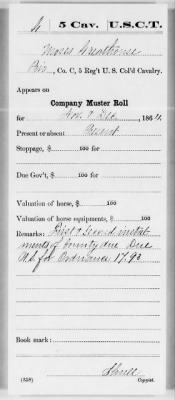 G | 5 Cav. | U.S.C.T.
Moses Greathouse
Pvt., Co. C, 5 Reg't U. S. Col'd Cavalry.
Appears on
Company Muster Roll
for Nov. & Dec., 1864.
Present or absent Present
Stoppage, $ 100 for
Due Gov't, $ 100 for
Valuation of horse, $ 100
Valuation of horse equipments, $ 100
Remarks: First & Second instal-
ments of bounty due Due
U.S. for Ordnance 17.93
Book mark:
(358) Copyist.